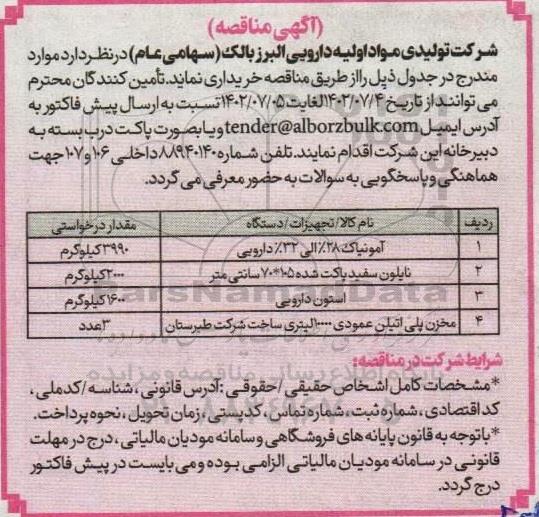 (آگهی مناقصه)
شرکت تولیدی مواد اولیه دارویی البرز بالک (سهامی عام) در نظر دارد موارد
مندرج در جدول ذیل را از طریق مناقصه خریداری نماید. تأمین کنندگان محترم
می توانند از تاریخ ۱۴۰۲/۰۷/۰۴ لغایت ۱۴۰۲/۰۷/۰۵ نسبت به ارسال پیش فاکتور به
آدرس ایمیل tender@alborzbulk.com و یا بصورت پاکت درب بسته به
دبیرخانه این شرکت اقدام نمایند. تلفن شماره ۸۸۹۴۰۱۴۰ داخلی ۱۰۶ و ۱۰۷ جهت
هماهنگی و پاسخگویی به سوالات به حضور معرفی می گردد.
ردیف نام کالا/تجهیزات/دستگاه مقدار درخواستی
۱ آمونیاک ۲۸٪ الی ۳۲٪ دارویی ۳۹۹۰ کیلوگرم
۲ نایلون سفید پاکت شده ۱۰۵*۷۰ سانتی متر ۲۰۰۰ کیلوگرم
۳ استون دارویی ۱۶۰۰ کیلوگرم
۴ مخزن پلی اتیلن عمودی ۱۰۰۰۰ لیتری ساخت شرکت طبرستان ۳ عدد
شرایط شرکت در مناقصه:
*مشخصات کامل اشخاص حقیقی/حقوقی: آدرس قانونی، شناسه/کدملی،
کد اقتصادی، شماره ثبت، شماره تماس، کدپستی، زمان تحویل، نحوه پرداخت.
*با توجه به قانون پایانه های فروشگاهی و سامانه مودیان مالیاتی، درج در مهلت
قانونی در سامانه مودیان مالیاتی الزامی بوده و می بایست در پیش فاکتور
درج گردد.
ParsNamadData
پایگاه اطلاع رسانی مناقصه و مزایده